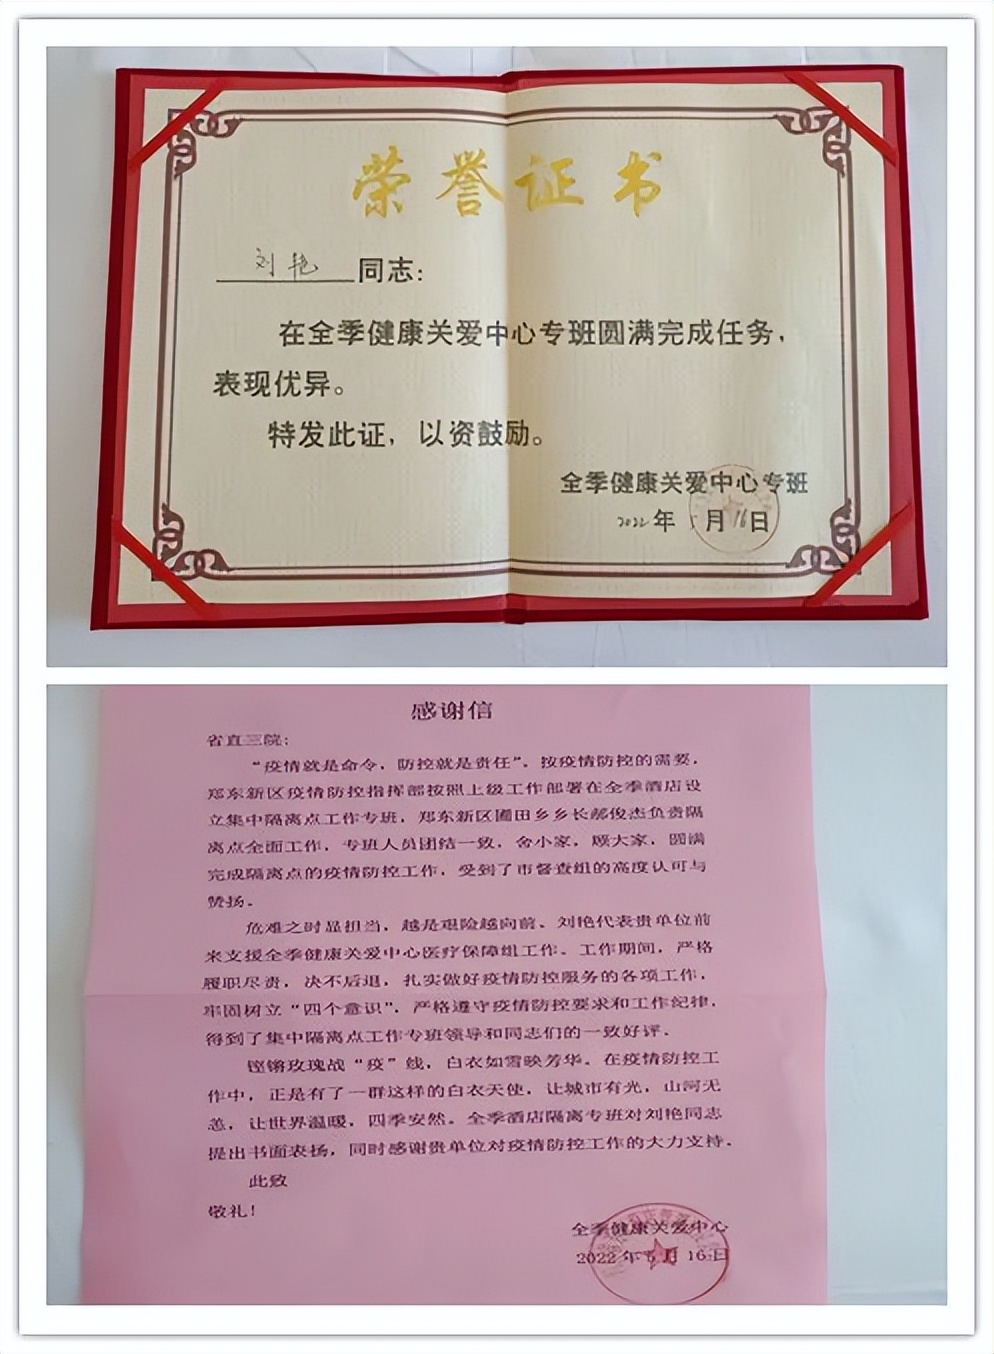 荣誉证书
刘艳 同志：
在全季健康关爱中心专班圆满完成任务，
表现优异。
特发此证，以资鼓励。
全季健康关爱中心专班
2022年5月16日
感谢信
省直三院：
“疫情就是命令，防控就是责任”。按疫情防控的需要，
郑东新区疫情防控指挥部按照上级工作部署在全季酒店设
立集中隔离点工作专班，郑东新区圃田乡乡长郝俊杰负责隔
离点全面工作，专班人员团结一致，舍小家，顾大家，圆满
完成隔离点的疫情防控工作，受到了市督查组的高度认可与
赞扬。
危难之时显担当，越是艰险越向前。刘艳代表贵单位前
来支援全季健康关爱中心医疗保障组工作。工作期间，严格
履职尽责，决不后退，扎实做好疫情防控服务的各项工作，
牢固树立“四个意识”，严格遵守疫情防控要求和工作纪律，
得到了集中隔离点工作专班领导和同志们的一致好评。
铿锵玫瑰战“疫”线，白衣如雪映芳华。在疫情防控工
作中，正是有了一群这样的白衣天使，让城市有光，山河无
恙，让世界温暖，四季安然。全季酒店隔离专班对刘艳同志
提出书面表扬，同时感谢贵单位对疫情防控工作的大力支持。
此致
敬礼！
全季健康关爱中心
2022年5月16日